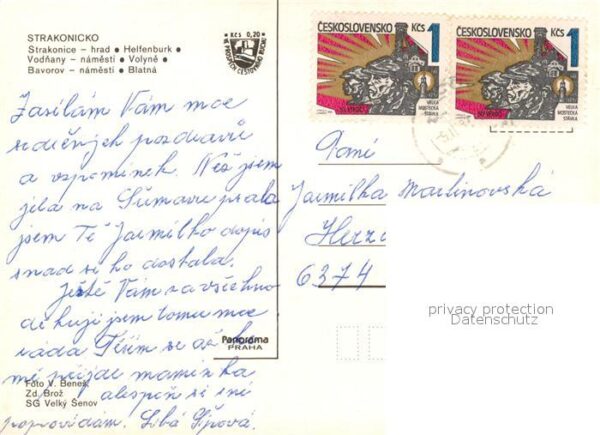 STRAKONICKO
Strakonice – hrad • Helfenburk •
Vodňany – náměstí • Volyně •
Bavorov – náměstí • Blatná
Kčs 0,20
VE PROSPĚCH CESTOVNÍHO RUCHU
ČESKOSLOVENSKO
Kčs 1
VELKÁ
MOSTECKÁ
STÁVKA
ČESKOSLOVENSKO
Kčs 1
VELKÁ
MOSTECKÁ
STÁVKA
Zasílám Vám moc
srdečných pozdravů
a vzpomínek. Než jsem
jela na Šumavu psala
jsem Tě Jarmilko dopis
snad si ho dostala.
Ještě Vám za všechno
děkuji jsem tomu moc
ráda Těším se až
mě přijde maminka
alespoň si
popovídám. Libá
Paní
Jarmilka Martinovská
6374
Panorama
PRAHA
Foto V. Beneš,
Zd. Brož
SG Velký Šenov
privacy protection
Datenschutz